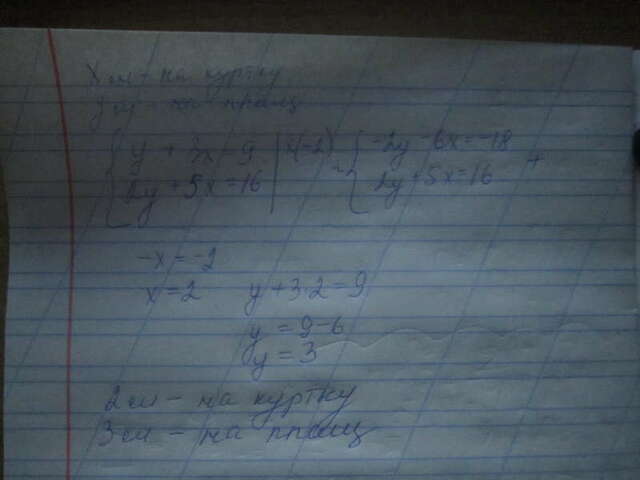 x м - на куртку
y м - на плащ
{ y + 3x = 9 | ·(-2) { -2y - 6x = -18
{ 2y + 5x = 16 { 2y + 5x = 16 +
-x = -2
x = 2 y + 3·2 = 9
y = 9-6
y = 3
2 м - на куртку
3 м - на плащ